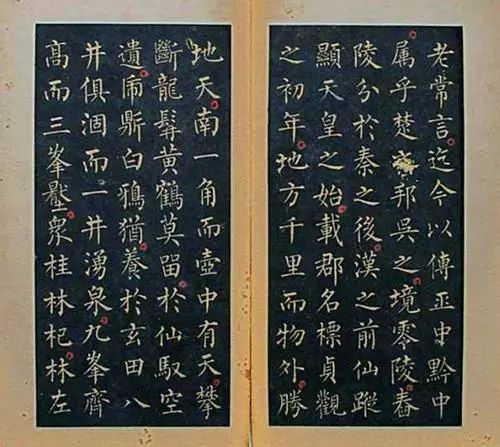 老常言迄今以傳巫中黔中
属乎楚邦吳之境零陵舂
陵分於秦之後漢之前仙蹤
顯天皇之始載郡名標貞觀
之初年地方千里而物外勝
地天南一角而壺中有天攀
斷龍髯黃鶴莫畱於仙馭空
遺乕鼎白鵶猶養於玄田八
井俱涸而一井湧泉九峯齊
髙而三峯壓衆桂林杞林左